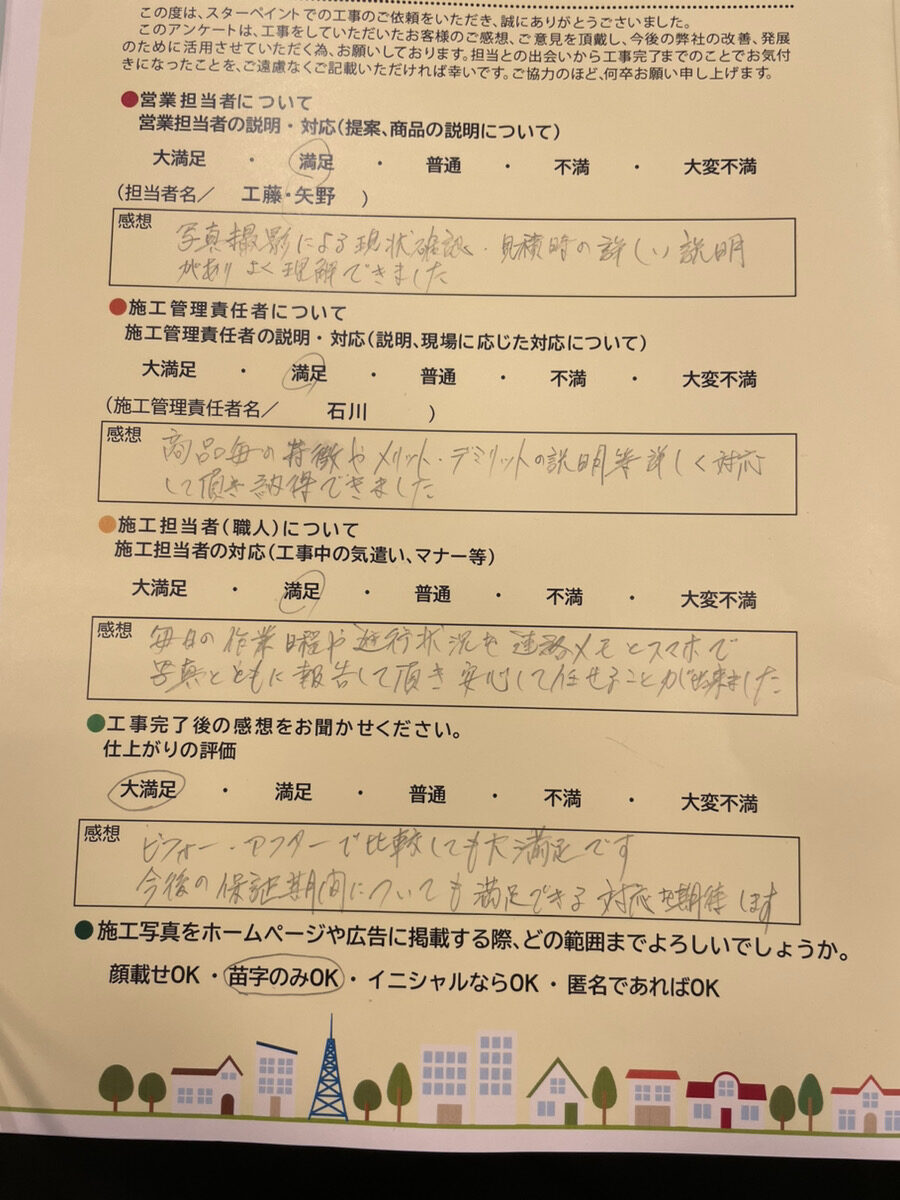 この度は、スターペイントでの工事のご依頼をいただき、誠にありがとうございました。
このアンケートは、工事をしていただいたお客様のご感想、ご意見を頂戴し、今後の弊社の改善、発展
のために活用させていただく為、お願いしております。担当との出会いから工事完了までのことでお気付
きになったことを、ご遠慮なくご記載いただければ幸いです。ご協力のほど、何卒お願い申し上げます。
●営業担当者について
営業担当者の説明・対応(提案、商品の説明について)
大満足 ・ 満足 ・ 普通 ・ 不満 ・ 大変不満
(担当者名/ 工藤・矢野 )
感想
写真撮影による現状確認・見積時の詳しい説明
がありよく理解できました
●施工管理責任者について
施工管理責任者の説明・対応(説明、現場に応じた対応について)
大満足 ・ 満足 ・ 普通 ・ 不満 ・ 大変不満
(施工管理責任者名/ 石川 )
感想
商品毎の特徴やメリット・デミリットの説明等詳しく対応
して頂き納得できました
●施工担当者(職人)について
施工担当者の対応(工事中の気遣い、マナー等)
大満足 ・ 満足 ・ 普通 ・ 不満 ・ 大変不満
感想
毎日の作業日程や進行状況を連絡メモとスマホで
写真とともに報告して頂き安心して任せることが出来ました
●工事完了後の感想をお聞かせください。
仕上がりの評価
大満足 ・ 満足 ・ 普通 ・ 不満 ・ 大変不満
感想
ビフォー・アフターで比較しても大満足です
今後の保証期間についても満足できる対応を期待します
●施工写真をホームページや広告に掲載する際、どの範囲までよろしいでしょうか。
顔載せOK・苗字のみOK・イニシャルならOK・匿名であればOK